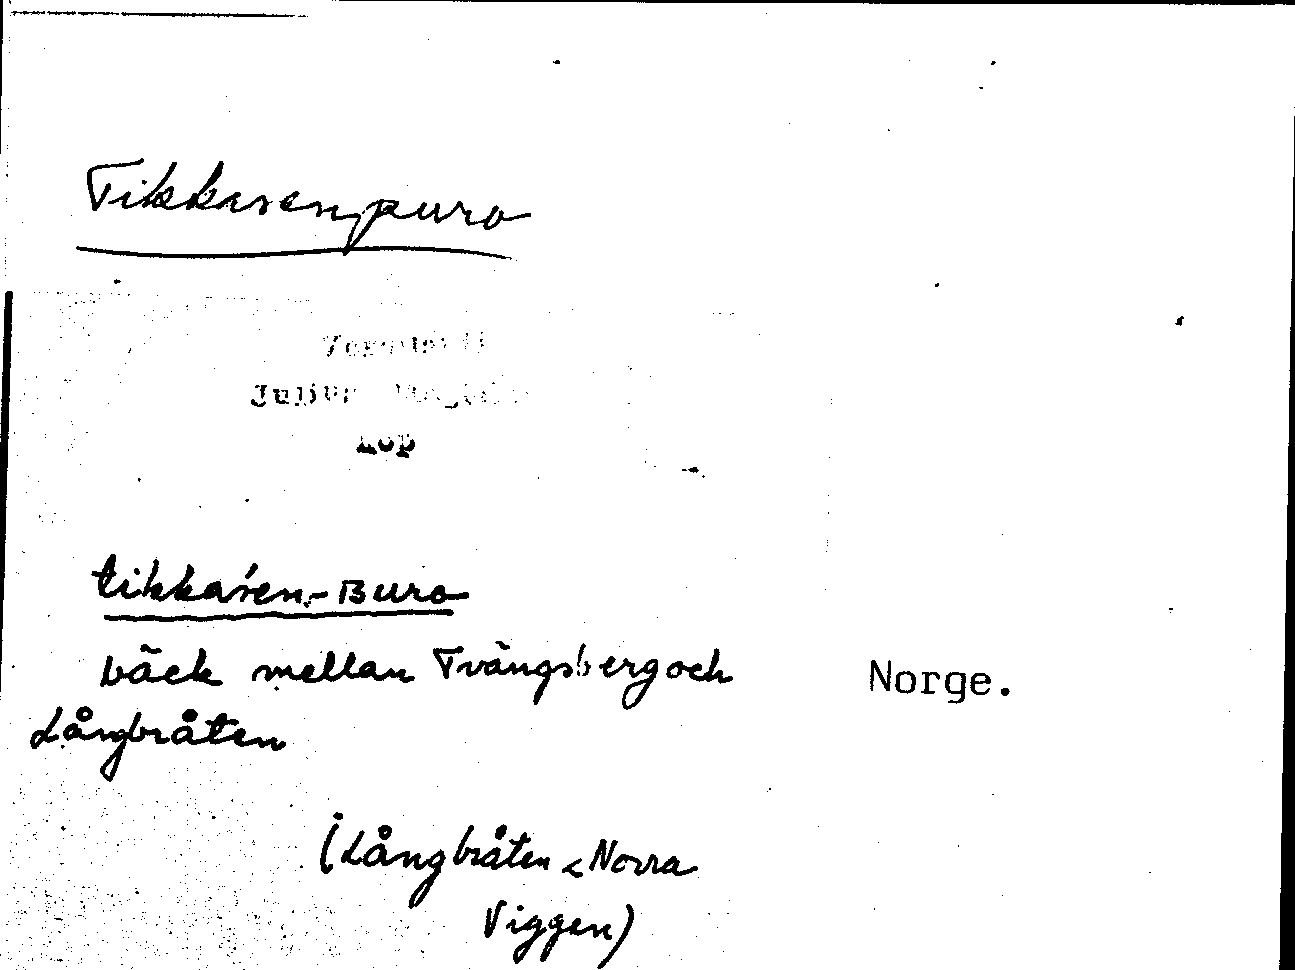 Tikkasenpuro
Julius
Kop
tikkaśen-Buro
bäck mellan Tvängsberg och
Långbråten
Norge.
(Långbråten < Norra
Viggen)